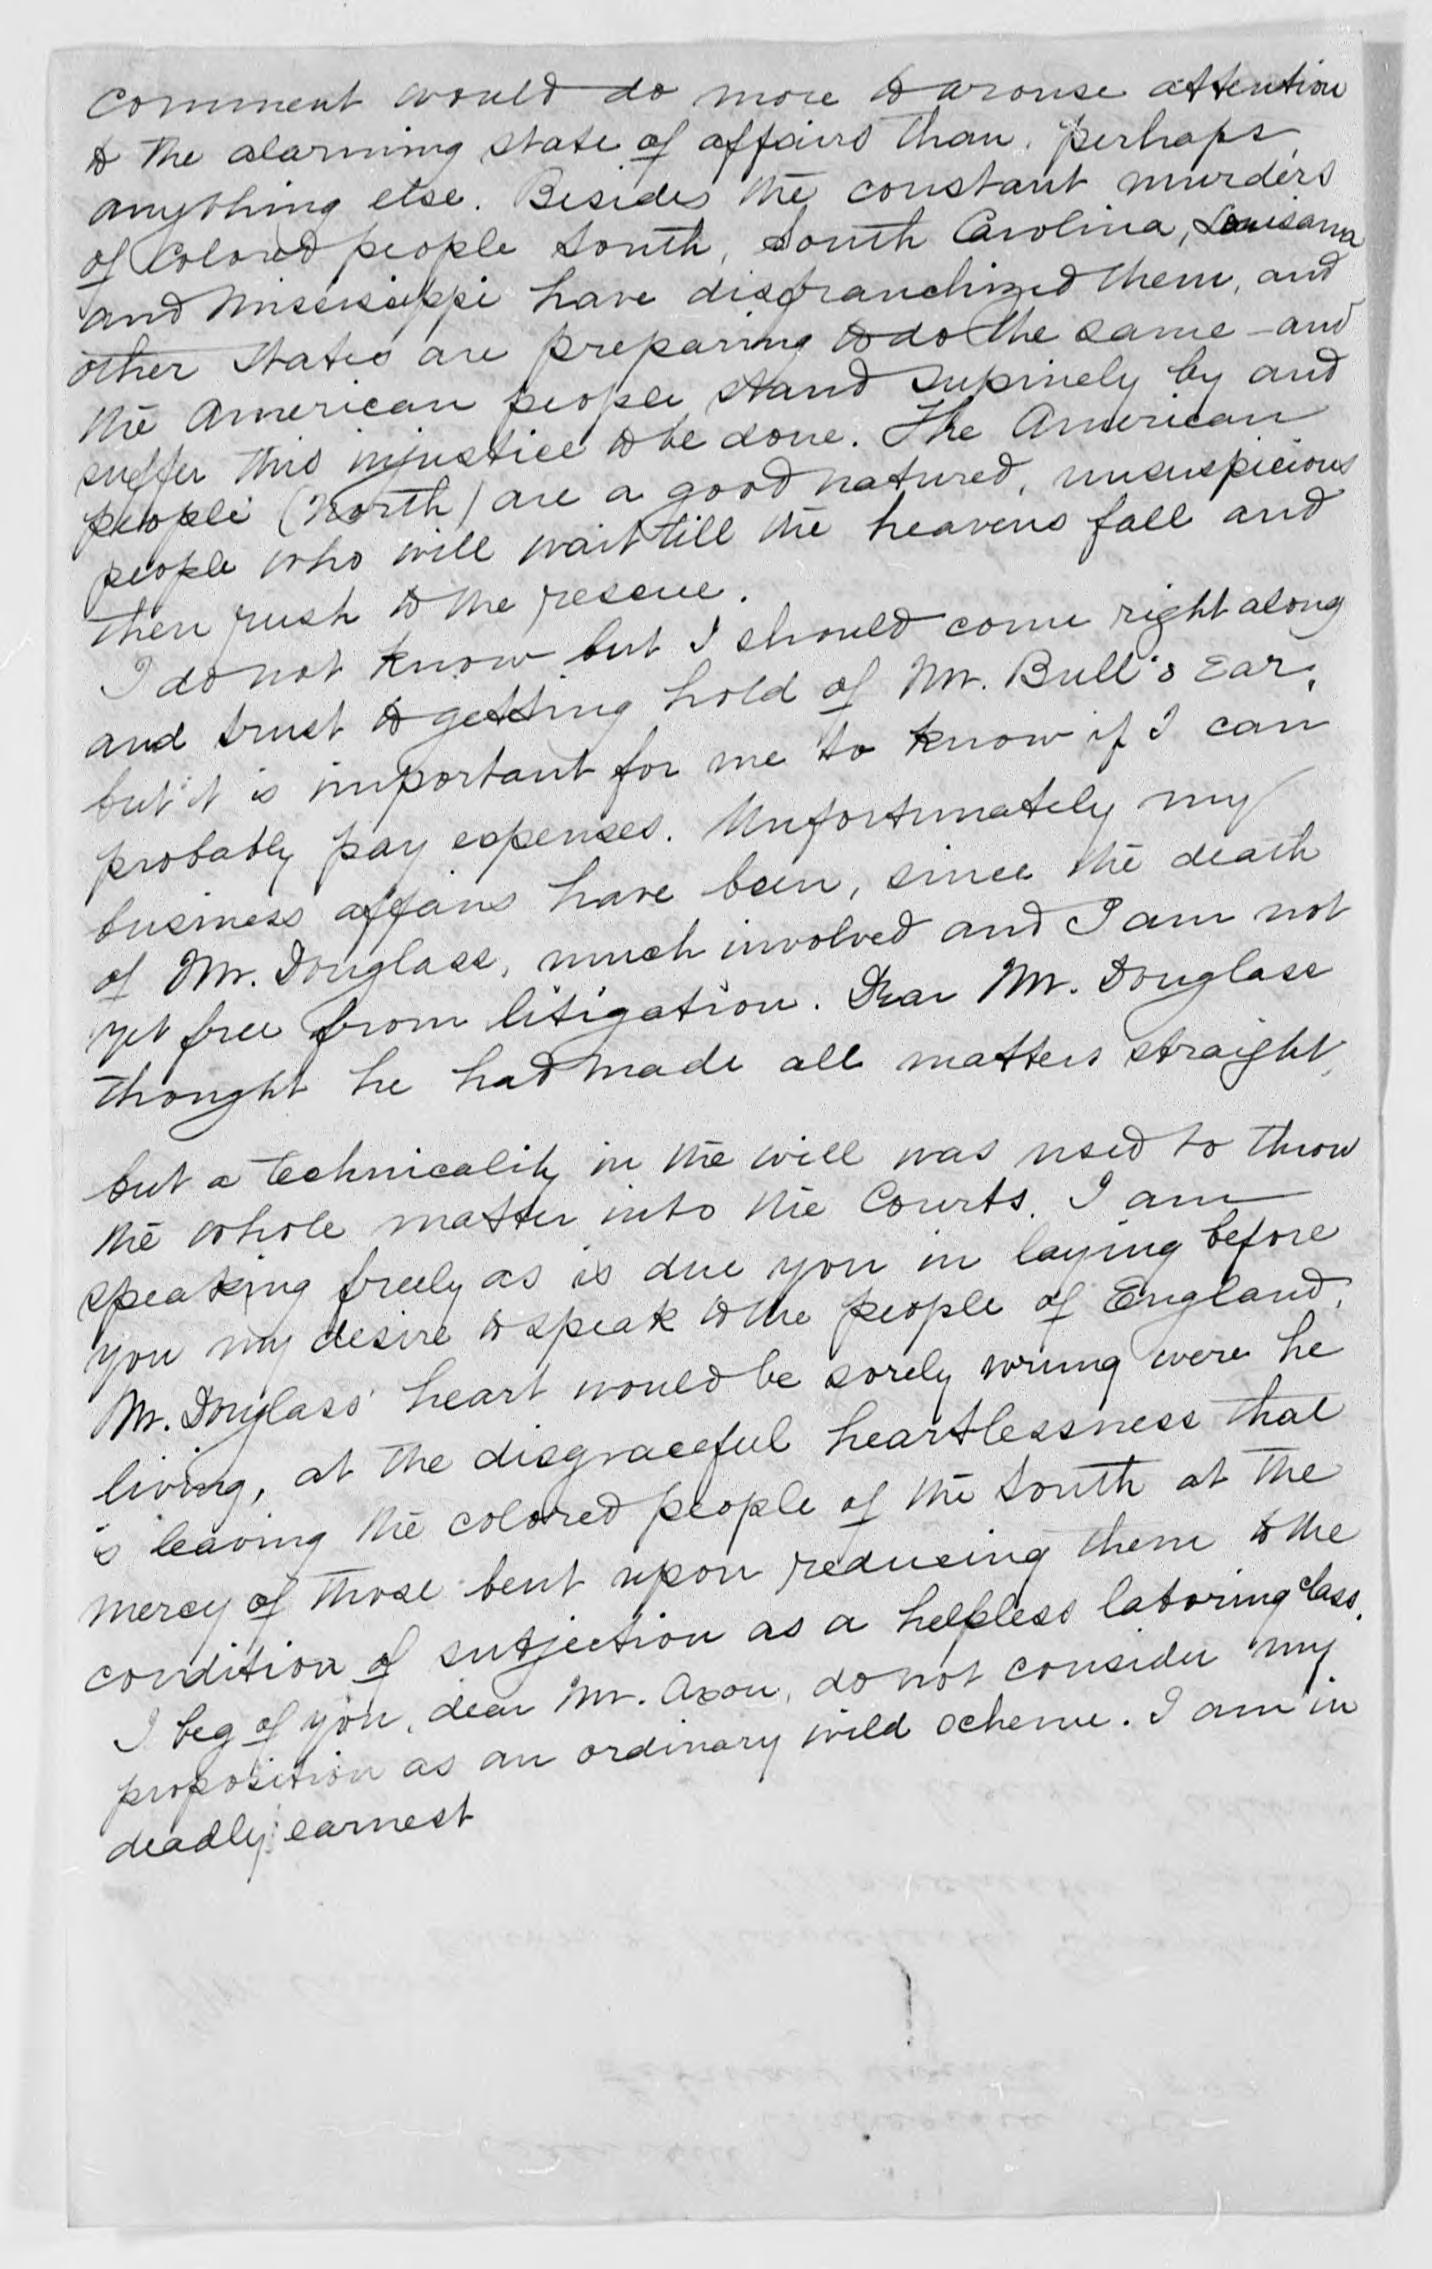 comment would do more to arouse attention
to the alarming state of affairs than, perhaps,
anything else. Besides the constant murders
of Colored people South, South Carolina, Louisana
and Mississippi have disfranchized them, and
other States are preparing to do the same - and
the American people stand supinely by and
suffer this injustice to be done. The American
people (North) are a good natured, unsuspicious
people who will wait till the heavens fall and
then rush to the rescue.
I do not know but I should come right along
and trust to getting hold of Mr. Bull's Ear,
but it is important for me to know if I can
probably pay expenses. Unfortunately my
business affairs have been, since the death
of Mr. Douglass, much involved and I am not
yet free from litigation. Dear Mr. Douglass
thought he had made all matters straight,
but a technicality in the will was used to throw
the whole matter into the Courts. I am
speaking freely as is due you in laying before
you my desire to speak to the people of England.
Mr. Douglass' heart would be sorely wrung were he
living, at the disgraceful heartlessness that
is leaving the colored people of the South at the
mercy of those bent upon reducing them to the
condition of subjection as a helpless laboring class.
I beg of you, dear Mr. Axon, do not consider my
proposition as an ordinary wild scheme. I am in
deadly earnest